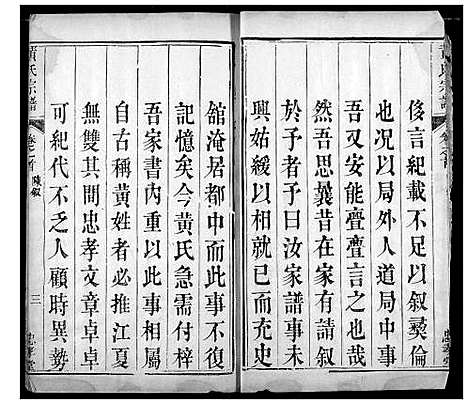 侈言紀載不足以叙彛倫
也况以局外人道局中事
吾又安能亹亹言之
然吾思曩昔在家有請叙
於予者予曰汝家譜事未
興姑緩就已而充史
舘淹居都中而此事不復
記憶矣今黃氏急需付梓
吾家書內兼以此事相屬
自古稱黃姓者必推江夏
無雙其間忠孝文章卓卓
可紀代不乏人顧時異勢
黃氏宗譜
卷之首
陳叙
三